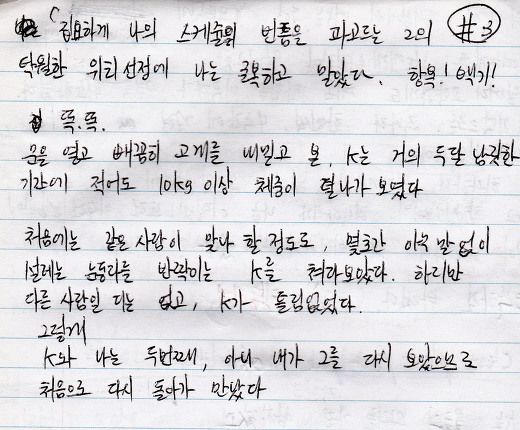 집요하게 나의 스케줄의 빈틈을 파고드는 그의 #3
탁월한 위치선정에 나는 굴복하고 말았다. 항복! 백기!
똑.똑.
문을 열고 빼꼼히 고개를 내밀고 본, K는 거의 두달 남짓한
기간에 적어도 10kg 이상 체중이 덜나가 보였다
처음에는 같은 사람이 맞나 할 정도로, 몇초간 아무 말 없이
설레는 눈동자를 반짝이는 K를 쳐다보았다. 하지만
다른 사람일 리는 없고, K가 틀림없었다.
그렇게
K와 나는 두번째, 아니 내가 그를 다시 보았으므로
처음으로 다시 돌아가 만났다